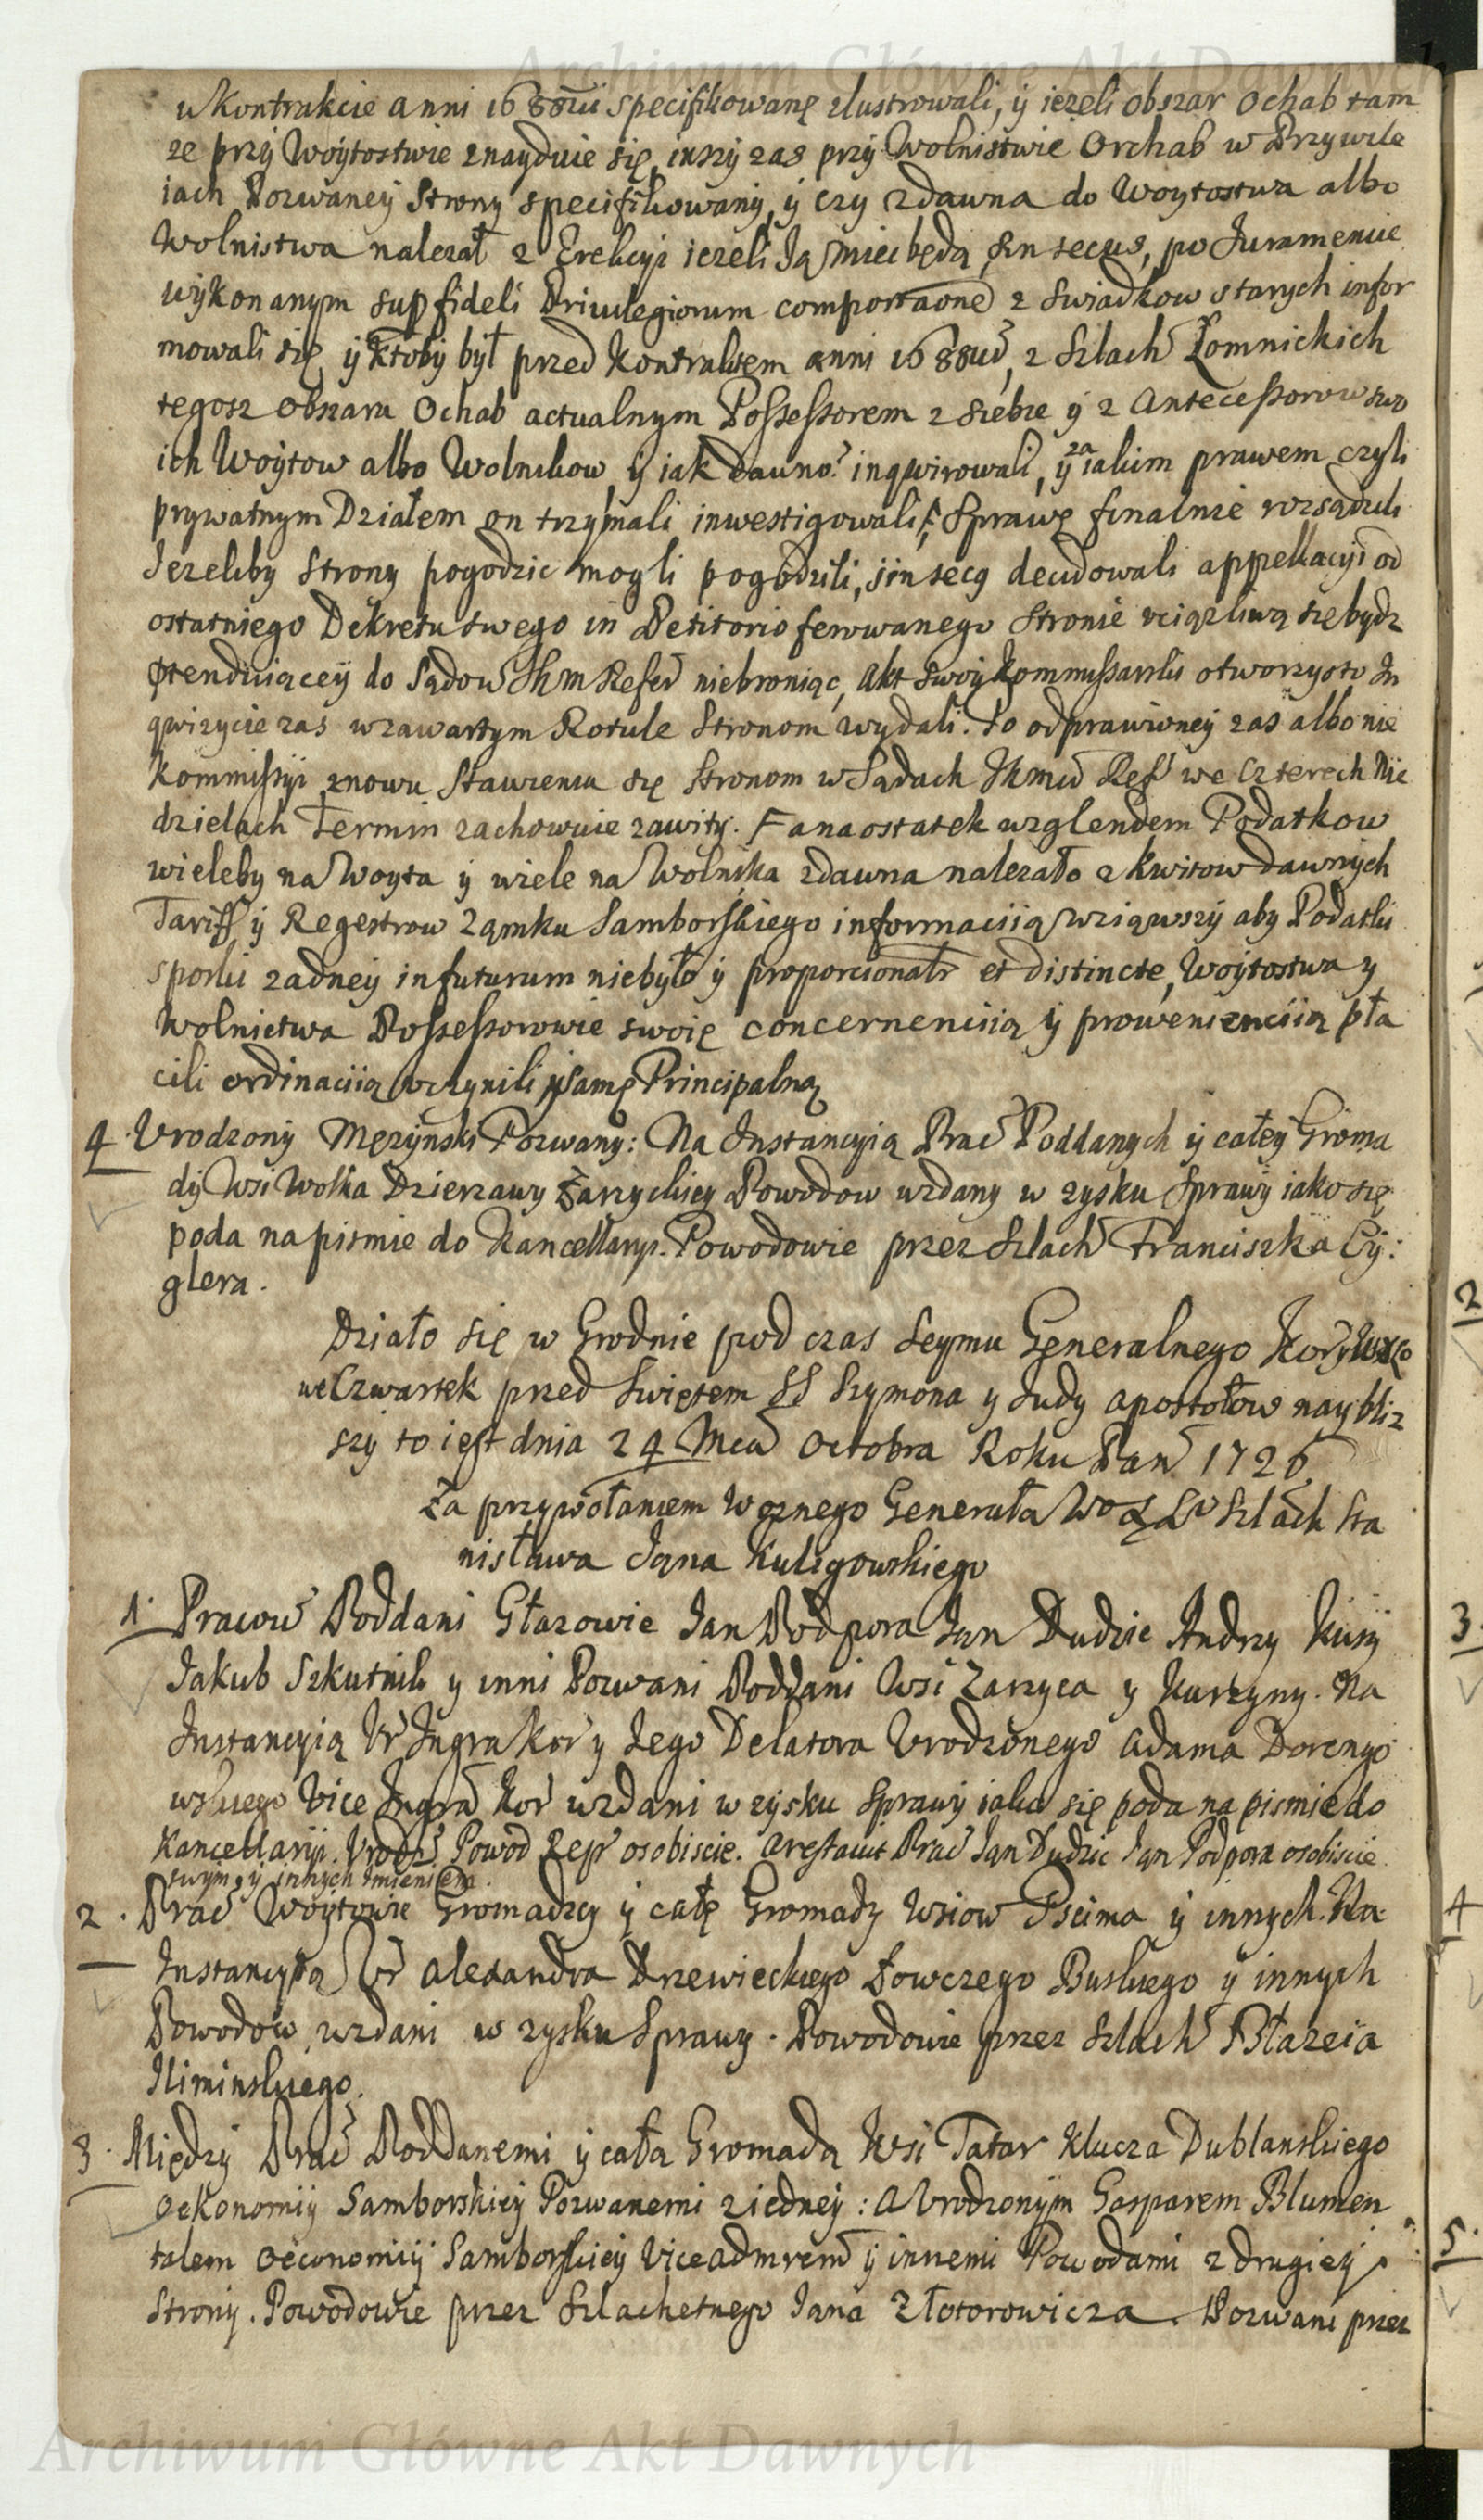 Archiwum Główne Akt Dawnych
w kontrakcie anni 1688vi specifikowanę zlustrowali, ÿ ieżeli obszar Ochab tam
ze przÿ Woÿtostwie znayduie się, inszÿ zas przÿ Wolnistwie Orchab w Przywile
iach Pozwaneÿ Strony specifikowanÿ, ÿ czy zdawna do Woytostwa albo
Wolnistwa nalezał z Erekcÿi iezeli Ją miec będą, sin secus, po Juramencie
wÿkonanym sup fideli Priuilegiorum comportaone z swiadkow starych infor
mowali się, ÿ ktoby był przed kontraktem anni 1688vi, z Szlach Łomnickich
tegosz obszaru Ochab actualnym Possessorem z siebie ÿ z Antecessorow swo
ich Woÿtow albo Wolnikow, ÿ iak dawno? inqwirowali, ÿ za iakim prawem czyli
prywatnym Działem on trzÿmali inwestigowali, Sprawę finalnie rozsądzili
Jezeliby Strony pogodzic mogli pogodzili, sin secq decidowali appellacÿi od
ostatniego Dekretu swego in Petitorio ferowanego Stronie vciązliwą się bydz
prtenduiąceÿ do Sądow Jhm Refer niebroniąc, Akt swoÿ Kommissarski otworzysto In
qwizycie zas w zawartym Rotule Stronom wydali. Po odprawioneÿ zas albo nie
Kommissÿi znowu Stawienia się Stronom w Sądach Jhmci Ref we Czterech Nie
dzielach Termin zachowuie zawitÿ. A na ostatek wzglendem Podatkow
wieleby na Woyta ÿ wiele na Wolnika zdawna nalezało z kwitow dawnÿch
Tariff ÿ Regestrow Zamku Samborskiego informaciią wziąwszÿ aby Podatki
sporki zadneÿ in futurum niebyło ÿ proporcionalr et distincte, Woÿtostwa y
Wolnictwa Possessorowie swoię concernenciią ÿ prowenienciią pła
cili ordinaciią vczynili ÿ samę Principalną
4. Vrodzonÿ Męzÿnski Pozwany: Na Instancyią Prac Poddanych ÿ całeÿ Groma
dÿ Wsi Wolka Dzierzawy Zarzyckiey Powodow wzdany w zysku Sprawÿ iako się
poda na pismie do Kancellaryi. Powodowie przez Szlach Franciszka Cÿ:
glera.
Działo się w Grodnie pod czas Seymu Generalnego Kor y WXLo
we Czwartek przed Swiętem SS Szymona y Judy Apostołow naybliz
szÿ to iest dnia 24 Mca Octobra Roku Pan 1726
Za przywołaniem Woznego Generała Szlach Sta
nisława Jana Kuligowskiego
1. Pracow Poddani Głazowie Jan Podpora Jan Dudzic Andrzy Kusz
Jakub Szkutnik y inni Pozwani Poddani Wsi Zarzyca y Kurzyny. Na
Instancyią Vr Ingra Kor y Jego Delatora Vrodzonego Adama Dorengo
wskiego Vice Ingra Kor wzdani w zÿsku Sprawÿ iako się poda na pismie do
Kancellarÿi. Vrodz Powod Repr osobiscie. Arestavit Prac Jan Dudzic Jan Podpora osobiscie
swym, ÿ innÿch imieniem.
2. Prac Woÿtowie Gromadzcy ÿ całe Gromadÿ Wsiow Pscima ÿ innych. Na
Instancyią Vr Alexandra Drzewieckiego Łowczego Buskiego ÿ innych
Powodow wzdani w zysku Sprawy. Powodowie przez Szlach Błazeia
Iliminskiego.
3. Międzÿ Prac Poddanemi ÿ całą Gromadą Wsi Tatar Klucza Dublanskiego
Oekonomiÿ Samborskieÿ Pozwanemi z iedneÿ: A Vrodzonÿm Gasparem Blumen
talem Oeconomiÿ Samborskieÿ Vice Admrem ÿ innemi Powodami z drugieÿ
Stronÿ. Powodowie przez Szlachetnego Jana Złotorowicza. Pozwani przez
2
3
4
5.
Archiwum Główne Akt Dawnych